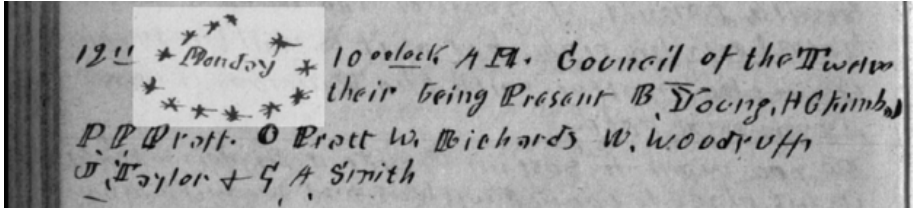 12th Monday 10 oclock A M. Council of the Twelve
their being Present B Young, H C Kimball
P. P. Pratt. O Pratt W. Richards W. Woodruff
J. Taylor + G A Smith